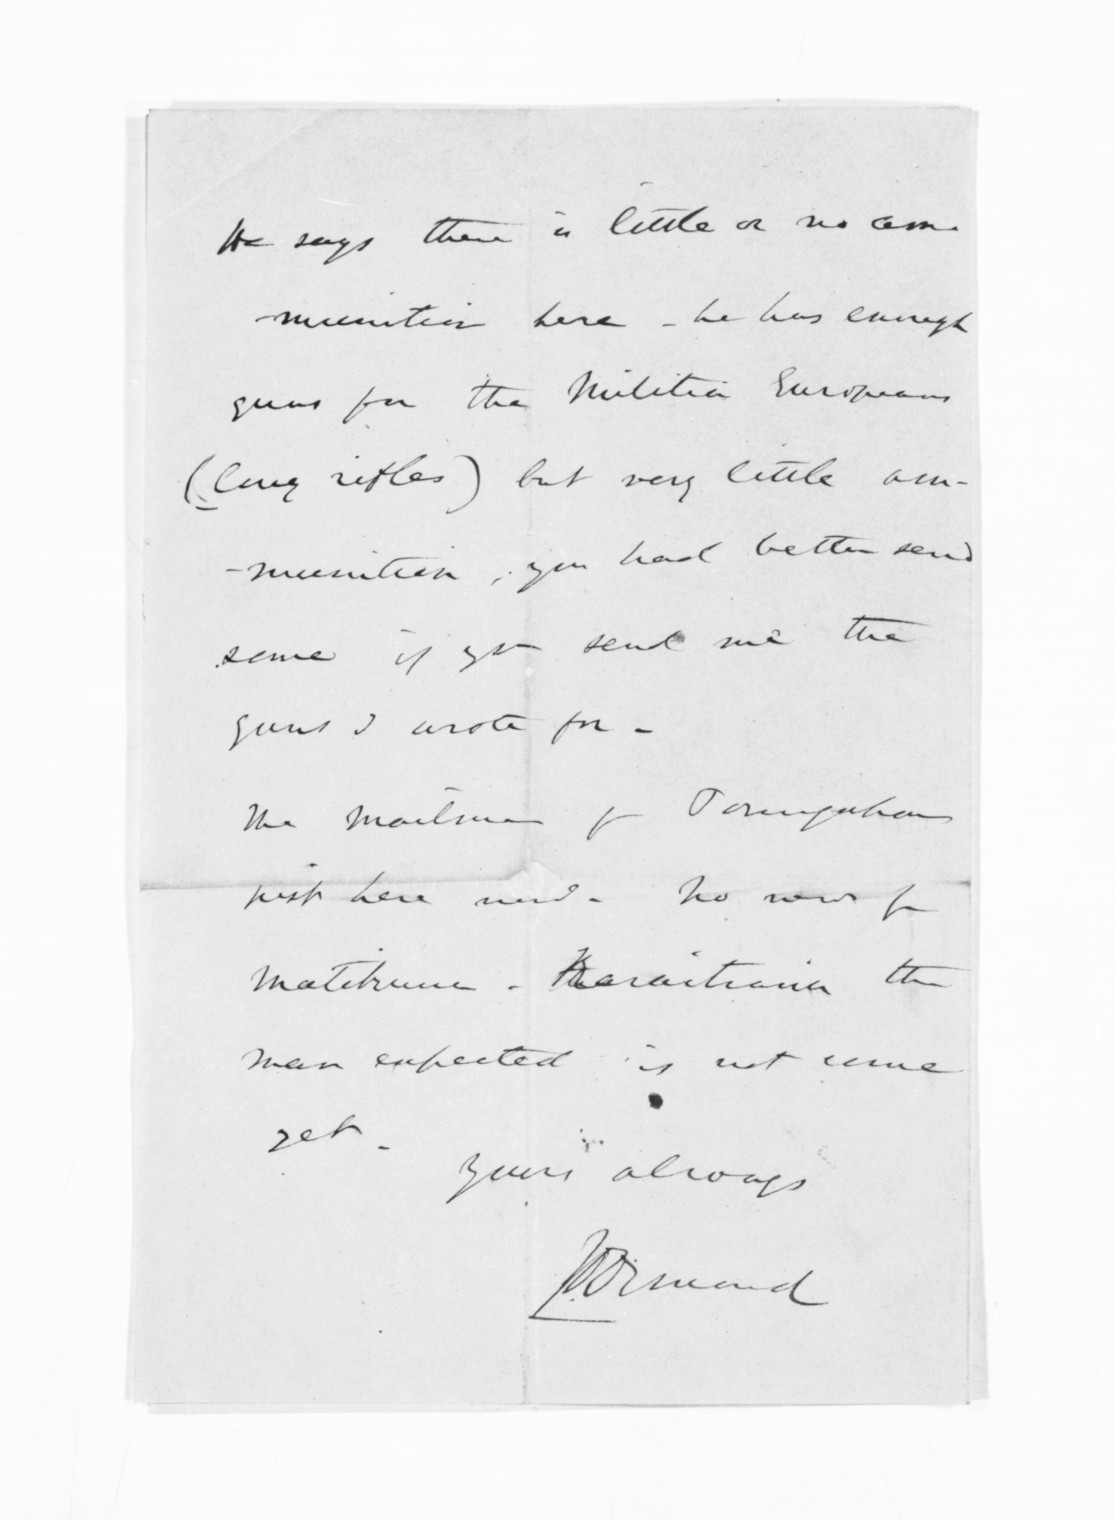 He says there is little or no am-
-munition here - he has enough
guns for the Militia Europeans
(long rifles) but very little am-
-munition, you had better send
some if you send me the
guns I wrote for -
the mailman fr Poverty
just here now - No news fr
Matiti - the
man expected is not come
yet -
yours always
Ormond